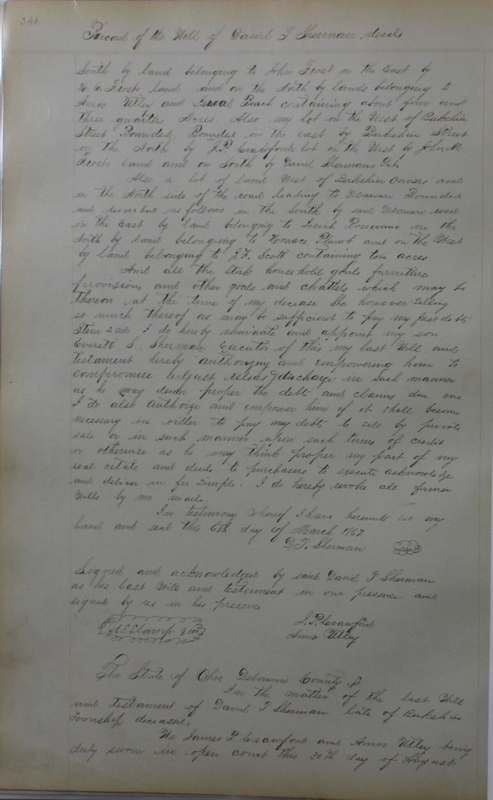 348
Record of the Will of David T Sherman Decd
South by land belonging to John Frost on the East by
Frosts land and on the North by lands belonging to
Amos Utley and Peach containing about four and
three quarters Acres. Also my lot on the West of Berkshire
Street Bounded, Bounded on the east by Berkshire Street
on the North by J.P. Crawfords lot on the West by John
Frosts land and on South by David Shermans Lot
Also a lot of land West of Berkshire Corners and
on the North side of the road leading to Delaware Bounded
and described as follows on the South by said Delaware road
on the East by land belonging to on the
North by land belonging to Horace Plumb and on the West
by land belonging to J.F. Scott containing ten acres
And all the Stock household goods furniture
provisions and other goods and chattels which may be
thereon at the time of my decease she however selling
so much thereof as may be sufficient to pay my just debts
Item 2nd I do hereby nominate and appoint my son
Everett S. Sherman Executor of this my last Will and
testament hereby authorizing and empowering him to
compromise adjust release & discharge in such manner
as he may deem proper the debts and claims due me
I do also authorize and empower him if it shall become
necessary in order to pay my debts to sell by private
sale or in such manner upon such terms of credit
or otherwise as he may think proper any part of my
real estate and deeds to purchasers to execute acknowledge
and deliver in fee simple. I do hereby revoke all former
Wills by me made.
In testimony whereof I have hereunto set my
hand and seal this 6th day of March 1867
D. T. Sherman Seal
Signed and acknowledged by said David T Sherman
as his last Will and testament in our presence and
signed by us in his presence
U.S. Stamp J. P. Crawford
Amos Utley
The State of Ohio Delaware County ss
In the matter of the last Will
and testament of David T Sherman late of Berkshire
Township deceased.
We James P Crawford and Amos Utley being
duly sworn in open court this 20th day of August